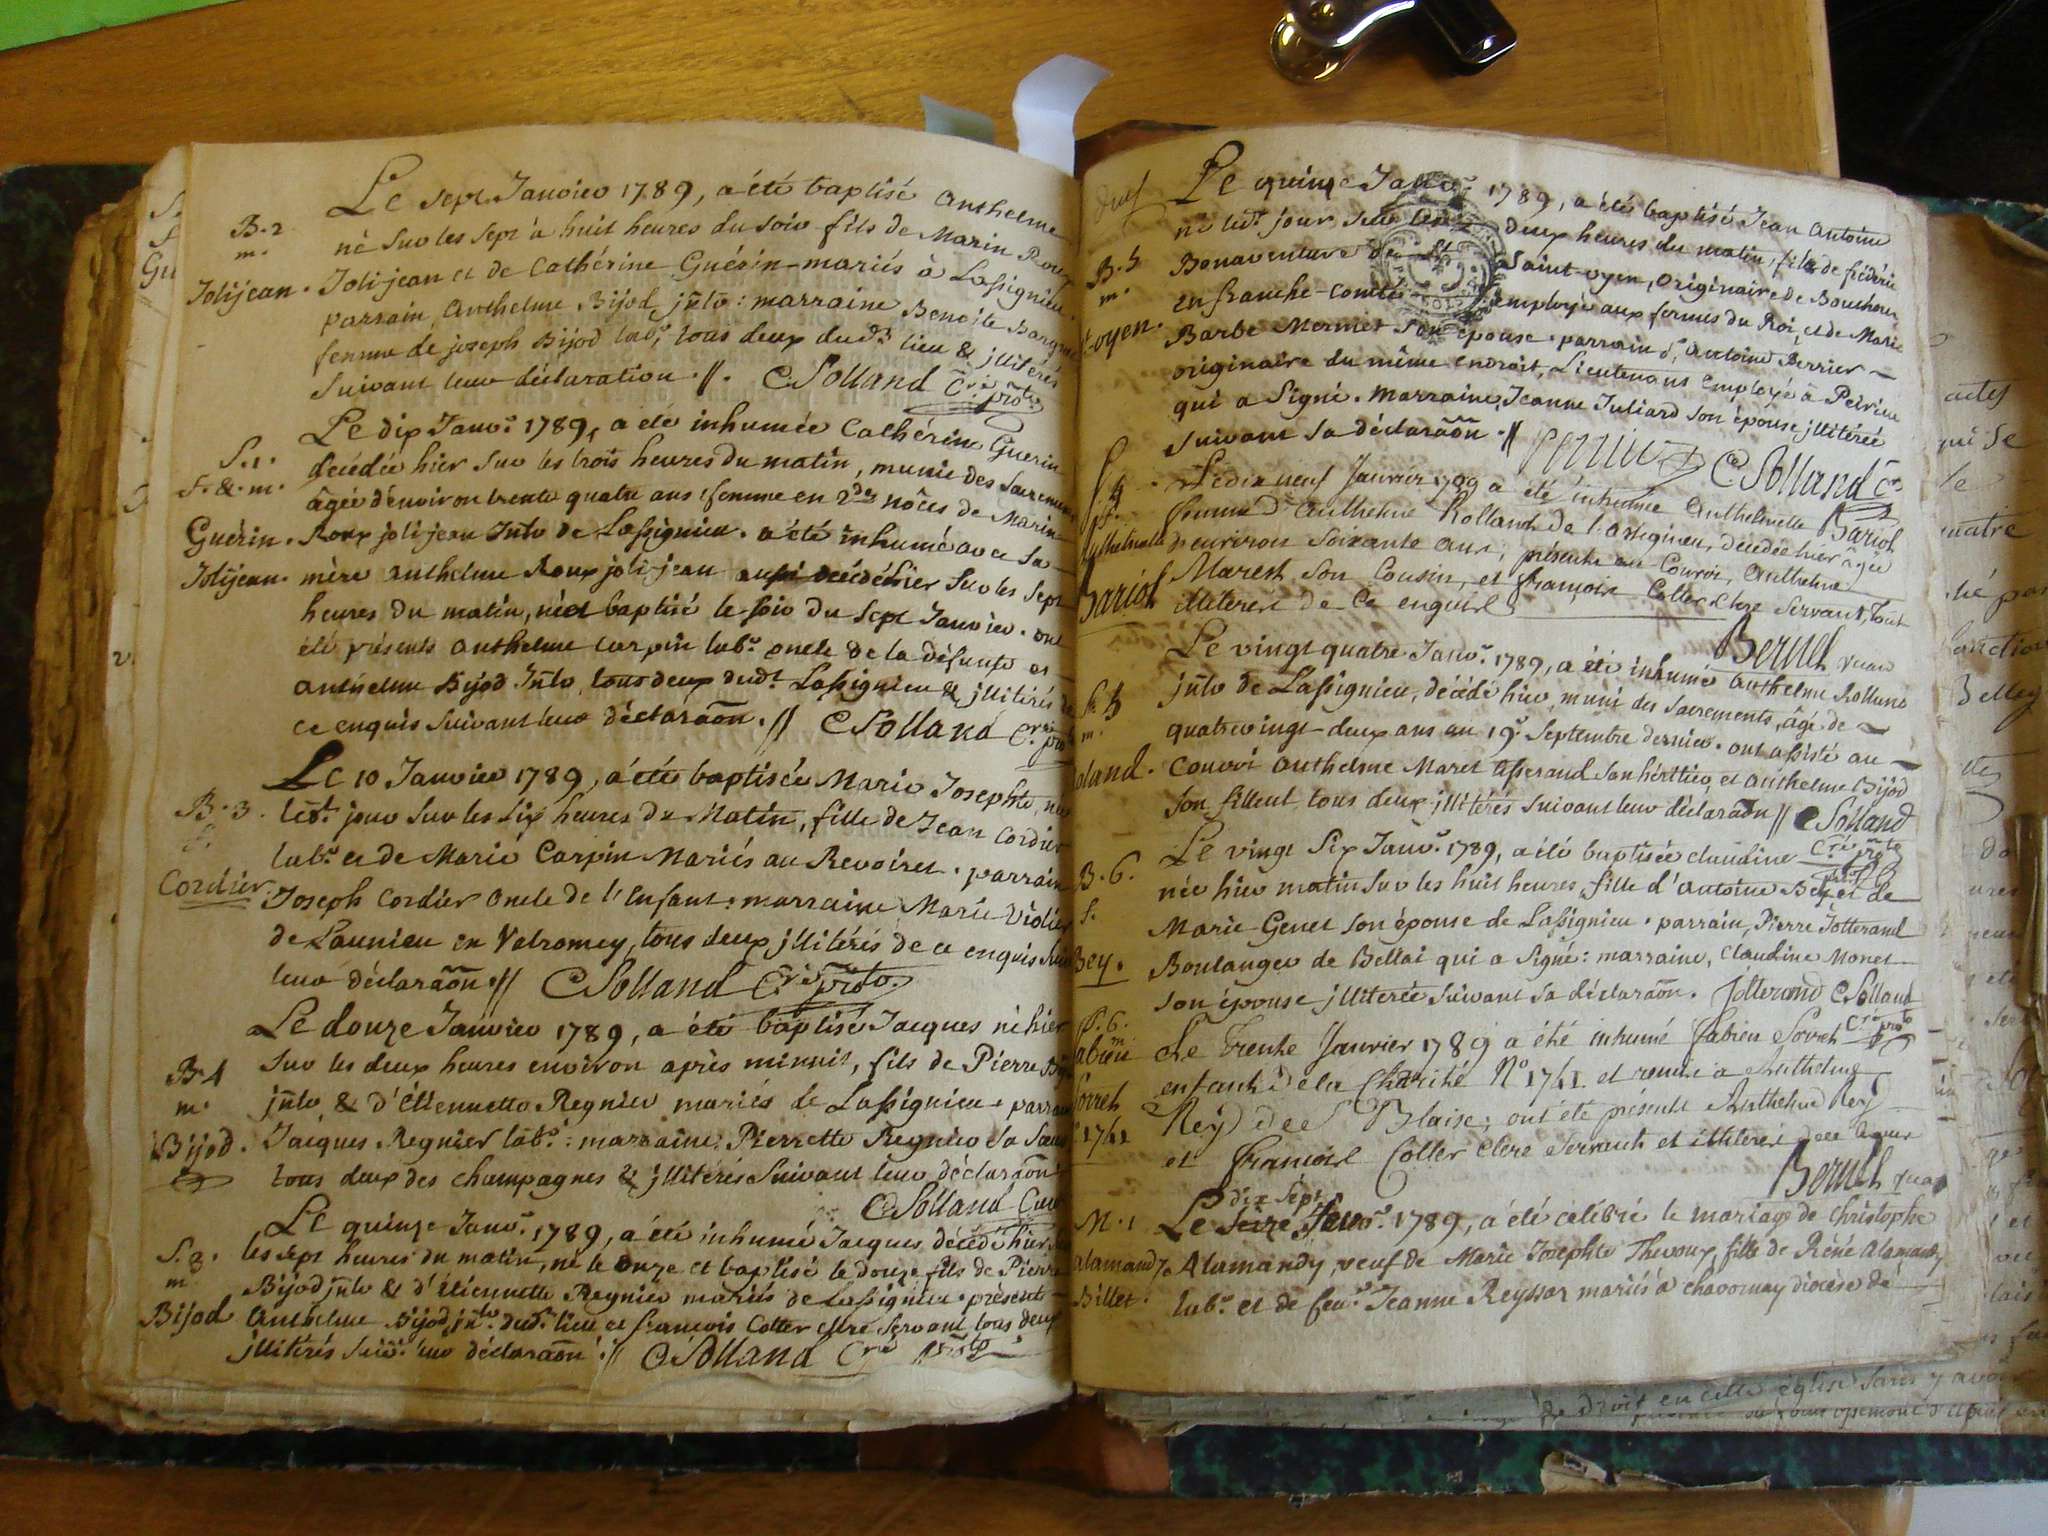 Le sept Janvier 1789, a été baptisé anthelme
B. 2 né sur les sept à huit heures du soir fils de Marin Roux
m. Jolijean. Joli-jean et de Cathérine Guérin mariés à Lassignieu.
parrain Anthelme Bijod jnlr: marraine Benoite
femme de joseph Bijod labr, tous deux dudt lieu & jllitérés
suivant leur déclaration. //. CSolland Cré prõtre
Le dix Janvr. 1789, a été inhumée Cathérine Guerin
S. 1. décédée hier sur les trois heures du matin, munie des sacremens
f. & m. âgée d'environ trente quatre ans femme en 2des nôces de Marin
Guérin. Roux joli jean Jnlr de Lassignieu. a été inhumé avec sa
Jolijean. mère anthelme Roux joli-jean aussi décédé hier sur les sept
heures du matin, né et baptisé le soir du sept Janvier. ont
été présents anthelme Carpin labr. oncle de la défunte et
anthelme Bijod Jnlr, tous deux dudt. Lassignieu & jllitérés de
ce enquis suivant leur déclaraõn. // CSolland Cré prõ
Le 10 Janvier 1789, a été baptisée Marie Josephte, née
B. 3. ledt. jour sur les six heures du Matin, fille de Jean Cordier
f. labr. et de Marie Carpin Mariés au Revoiret. parrain
Cordier. Joseph Cordier oncle de l'enfant. marraine Marie Violier
de Launieu en Valromey, tous deux jllitérés de ce enquis suiv
leur déclaraõn. // CSolland Cré prõtre.
Le douze Janvier 1789, a été baptisé Jacques né hier
B. 4 sur les deux heures environ après minuit, fils de Pierre Bij
m. jnlr & d'étiennette Regnier mariés de Lassignieu. parrain
Bijod. Jacques Regnier labr.: marraine, Pierrette Regnier sa sœur
tous deux des champagnes & jllitérés suivant leur déclaraõn
CSolland Curé
Le quinze Janvr. 1789, a été inhumé Jacques décédé hier
S. 2. les sept heures du matin, né le onze et baptisé le douze, fils de Pierre
m. Bijod jnlr & d'étiennette Regnier mariés de Lassignieu. présents
Bijod Anthelme Bijod, jnlr. dudt. lieu et francois Cotter clerc servant tous deux
jllitérés suivt. leur déclaraõn. // CSolland Cré prõtre
Le quinze Janvr. 1789, a été baptisé Jean Antoine
né ledt jour sur les deux heures du matin, fils de fréderic
B. 5 Bonaventure de St Saint-oyen, originaire de Bouchoux
m. en franche-comté employé aux fermes du Roi, et de Marie
oyen. Barbe Mermet son épouse. parrain sr. antoine Perrier
originaire du même endroit, Lieutenant employé à Peirieu
qui a signé. marraine, Jeanne Juliard son épouse jllitérée
suivant sa déclaraõn. // Perrier CSolland Cré
S. 4 Le dix neuf Janvier 1789 a été inhumée Anthelmette Bariol
f. femme d'anthelme Rolland de Lassignieu, décédée hier âgée
Anthelmette d'environ soixante ans, présents au Convoi, Anthelme
Bariol Marest son Cousin, et françois Cotter clerc servant, tous
illiterés de ce enquis
Bernel vicaire
Le vingt quatre Janvr. 1789, a été inhumé anthelme Rolland
S. 5 jnlr de Lassignieu, décédé hier, muni des sacrements, âgé de
m. quatrevingt-deux ans au 19e. septembre dernier. ont assisté au
oland. convoi anthelme Maret tisserand son héritier, et anthelme Bijod
son filleul, tous deux jllitérés suivant leur déclaraõn // CSolland
Le vingt six Janvr. 1789, a été baptisée claudine Cré prõtre
B. 6. née hier matin sur les huit heures, fille d'antoine Bey et de
f. Marie Genet son épouse de Lassignieu. parrain, Pierre Jotterand
Bey. Boulanger de Bellai qui a signé: marraine, Claudine Monet
son épouse jllitérée suivant sa déclaraõn. Jotterand CSolland
S. 6. m Cré prõtre
fabien Le Trente Janvier 1789 a été inhumé fabien Sorret
Sorret enfant de la Charité No 1741 et remis a Anthelme
1741 Rey de St Blaise, ont été présents Anthelme Rey
et françois Cotter clerc servant et illiterés de ce enquis
Bernel vicaire
dix sept
M. 1 Le seize Janvr. 1789, a été célébré le mariage de Christophe
alamandy Alamandy, veuf de Marie Josephte Thevoux, fils de Réné Alamandy
Billet. labr. et de feue. Jeanne Reyssar mariés à chavornay diocèse de